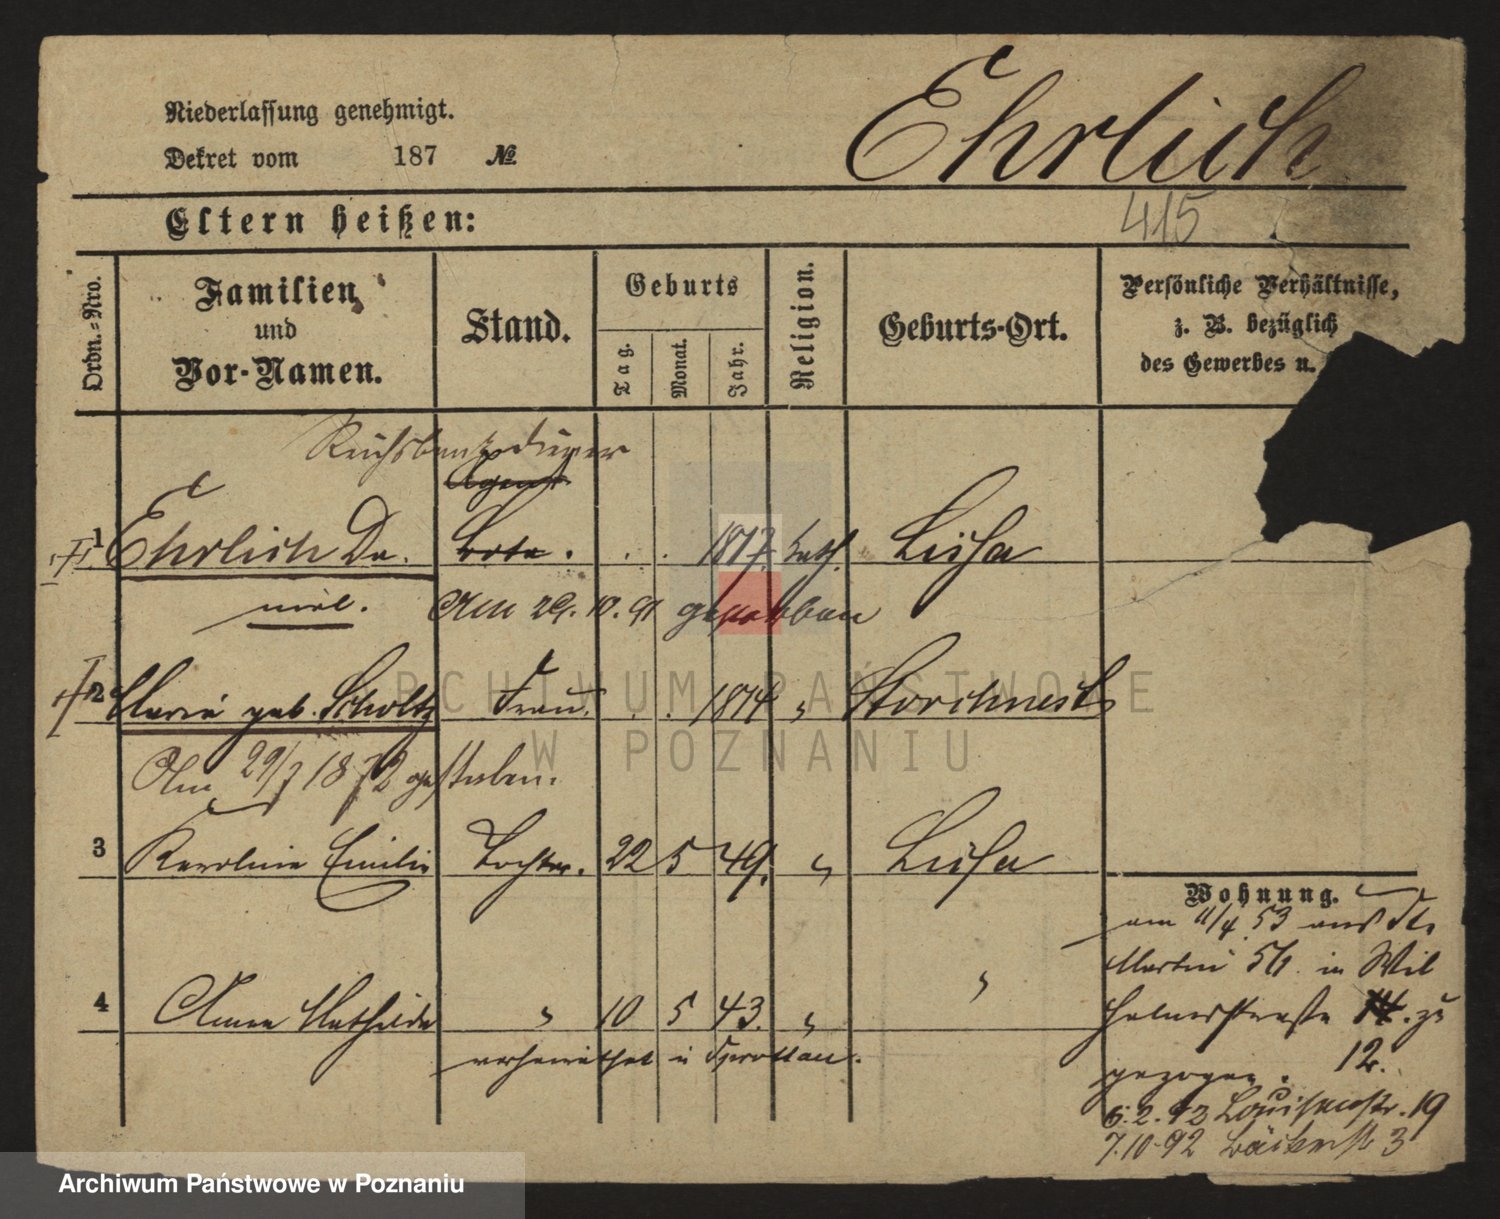 Niederlassung genehmigt.
Dekret vom 187 №
Ehrlich
415
Eltern heißen:
Ordn.-Nro.
Familien und Vor-Namen.
Stand.
Geburts
Tag.
Monat.
Jahr.
Religion.
Geburts-Ort.
Persönliche Verhältnisse,
z. B. bezüglich
des Gewerbes u.
Agent
1 Ehrlich Da. Bote. 1817. kath. Lissa
niel. Am 29. 10. 91 gestorben
2 Maria geb. Scholtz Frau. 1814 " Storchnest
Am 29/7 1872 gestorben.
3 Karoline Emilie Tochter. 22 5 49. " Lissa
Wohnung.
am 11/4 53 aus St.
Martin 56. in Wil
4 Anna Mathilde " 10 5 43. " "
helmsstrasse 14. zu
12.
verheirathet in Sprottau.
gezogen.
6.2.92 Louisenstr. 19
7.10.92 Bäckerstr 3
ARCHIWUM PAŃSTWOWE
W POZNANIU
Archiwum Państwowe w Poznaniu